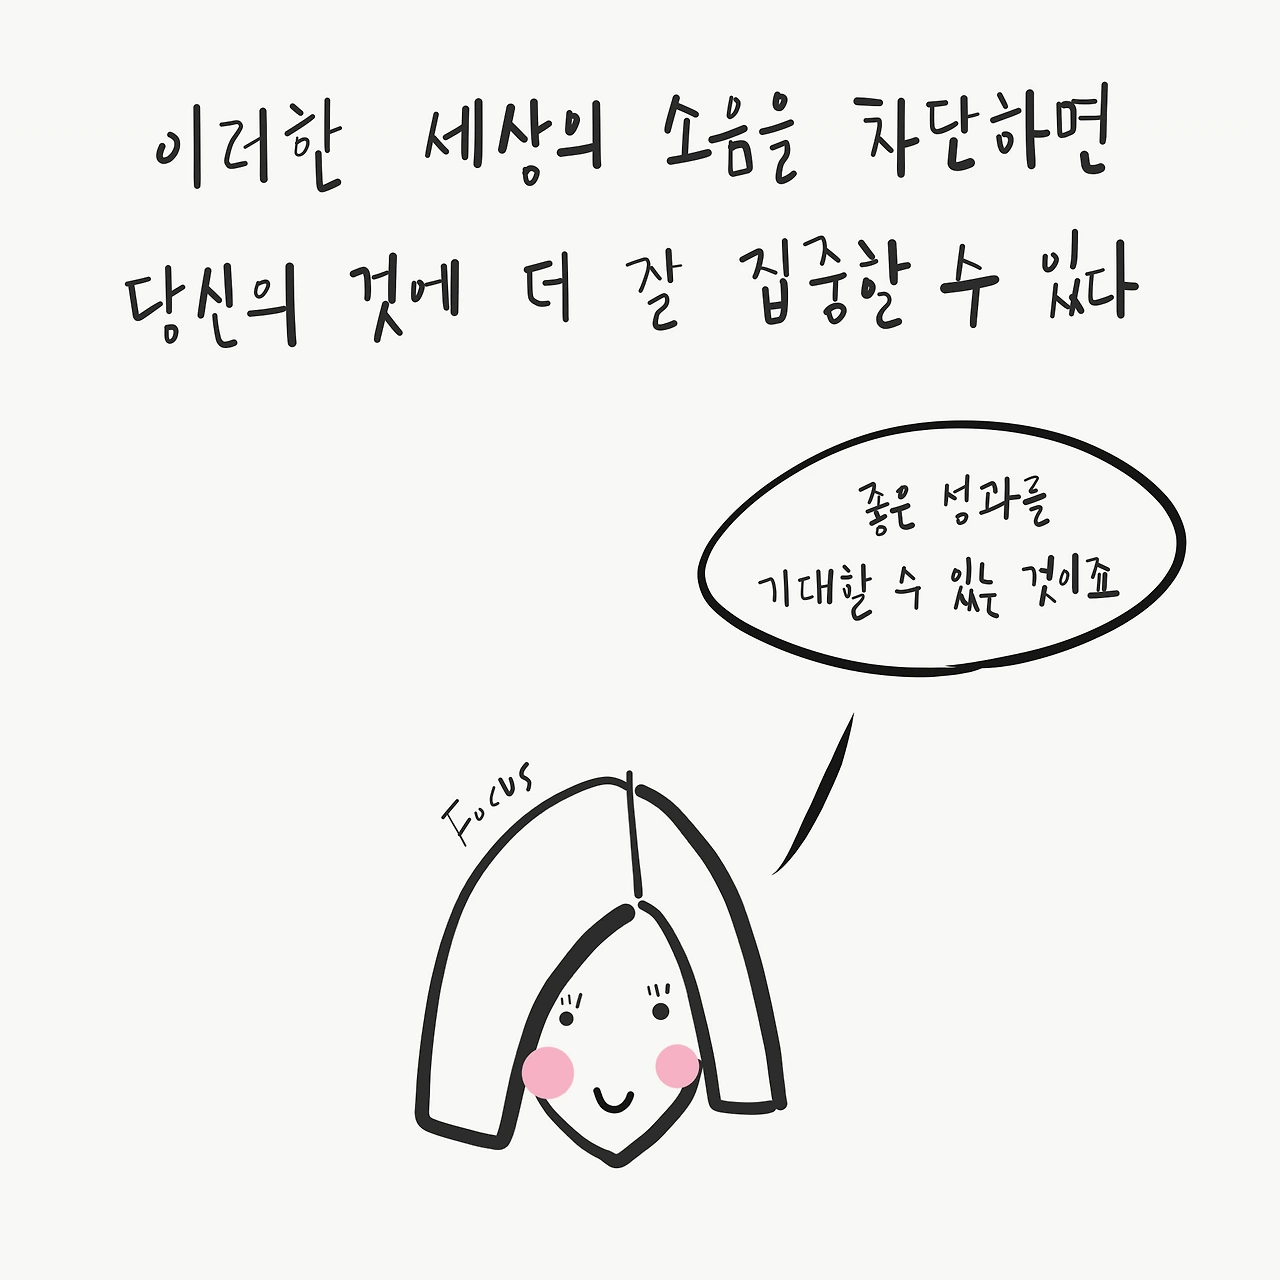 이러한 세상의 소음을 차단하면
당신의 것에 더 잘 집중할 수 있다
좋은 성과를
기대할 수 있는 것이죠
Focus